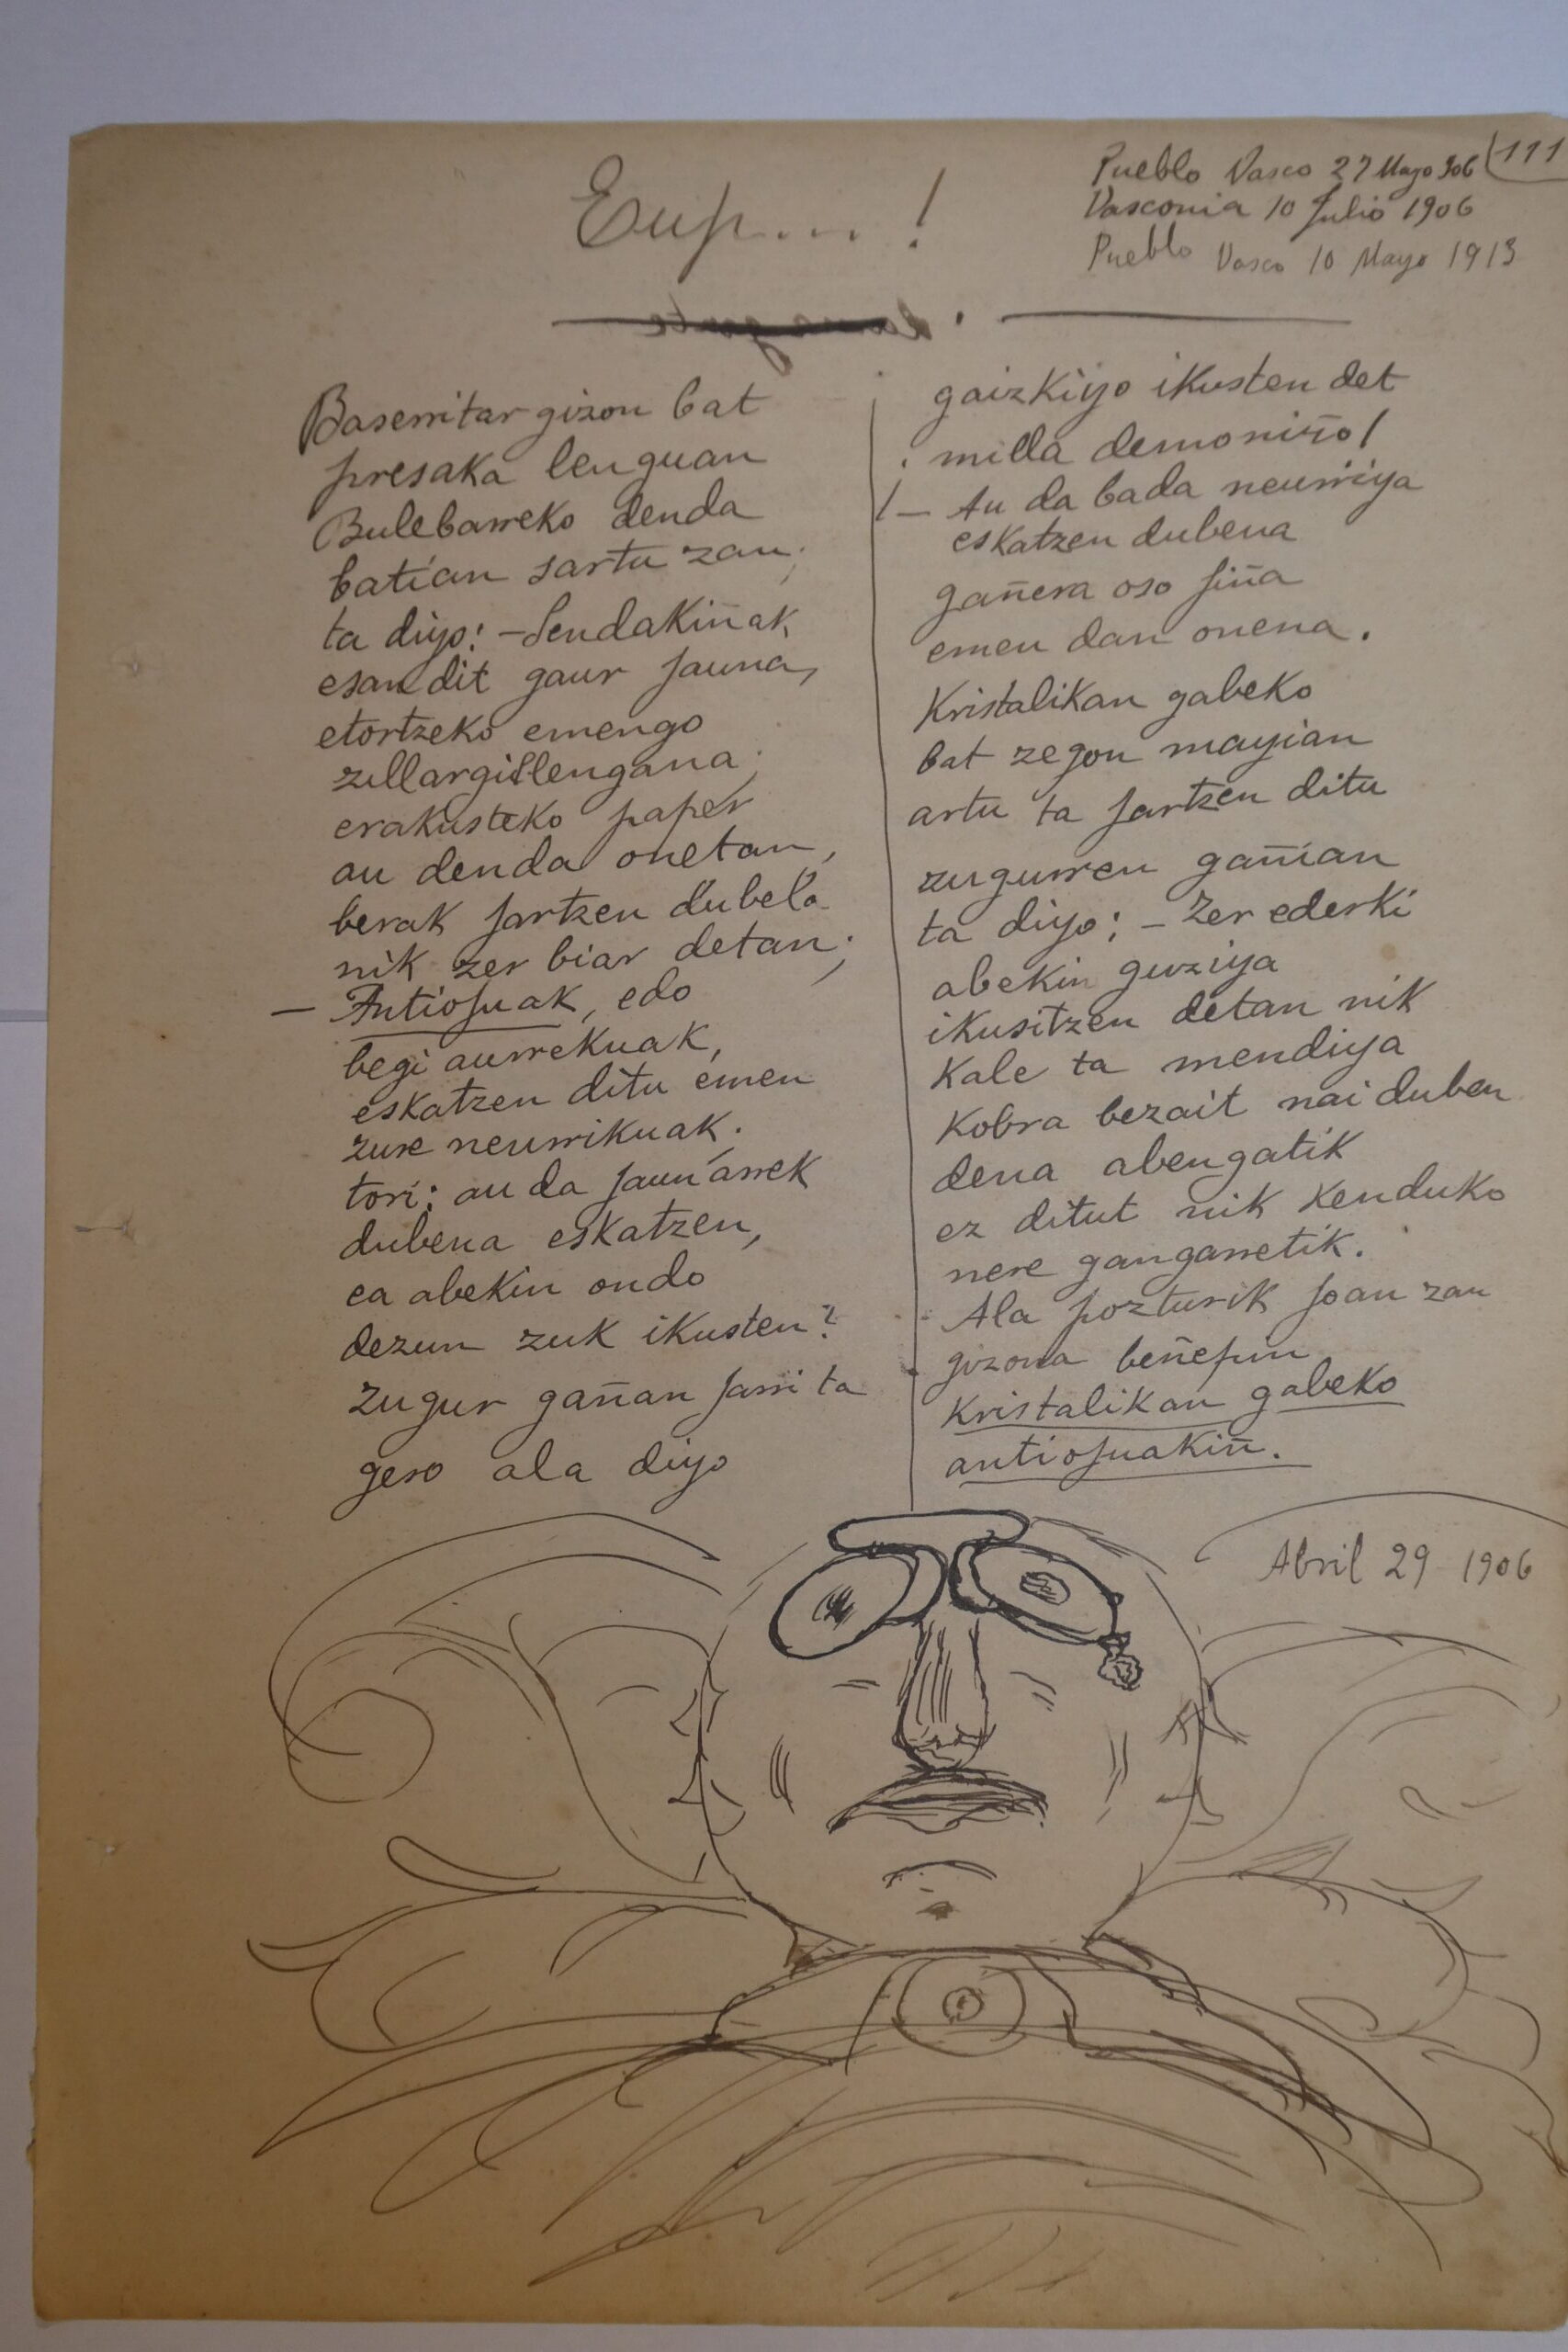 Eup... !
Pueblo Vasco 27 Mayo 906
111
Vasconia 10 Julio 1906
Pueblo Vasco 10 Mayo 1913
Baserritar gizon bat
presaka lenguan
Bulebarreko denda
batian sartu zan;
ta diyo: - Sendakiñak
esan dit gaur jauna,
etortzeko emengo
zillargillengana;
erakusteko paper
au denda onetan,
berak jartzen dubela
nik zer biar detan;
— Antiojuak, edo
begi aurrekuak,
eskatzen ditu emen
zure neurrikuak.
tori: au da jaun arrek
dubena eskatzen,
ea abekin ondo
dezun zuk ikusten?
Zugur gañan jarri ta
gero ala diyo
gaizkiyo ikusten det
¡milla demoniño!
— Au da bada neurriya
eskatzen dubena
gañera oso fiña
emen dan onena.
Kristalikan gabeko
bat zegon mayian
artu ta jartzen ditu
zugurren gañian
ta diyo: - Zer ederki
abekin guziya
ikusitzen detan nik
Kale ta mendiya
Kobra bezait nai duben
dena abengatik
ez ditut nik kenduko
nere gangarretik.
Ala pozturik joan zan
gizona beñepin
Kristalikan gabeko
antiojuakiñ.
Abril 29 1906